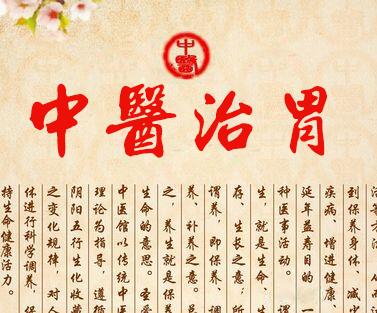 中醫
中醫治胃
到保养身体、减少
疾病、增进健康、
延年益寿目的一
种医事活动。
生，就是生命、
存、生长之意；
谓养，即保养、
养、补养之意。
之，养生就是保养
生命的意思。圣爱
中医馆以传统中医
理论为指导，遵循
阴阳五行生化收藏
之变化规律，对人
体进行科学调养，保
持生命健康活力。